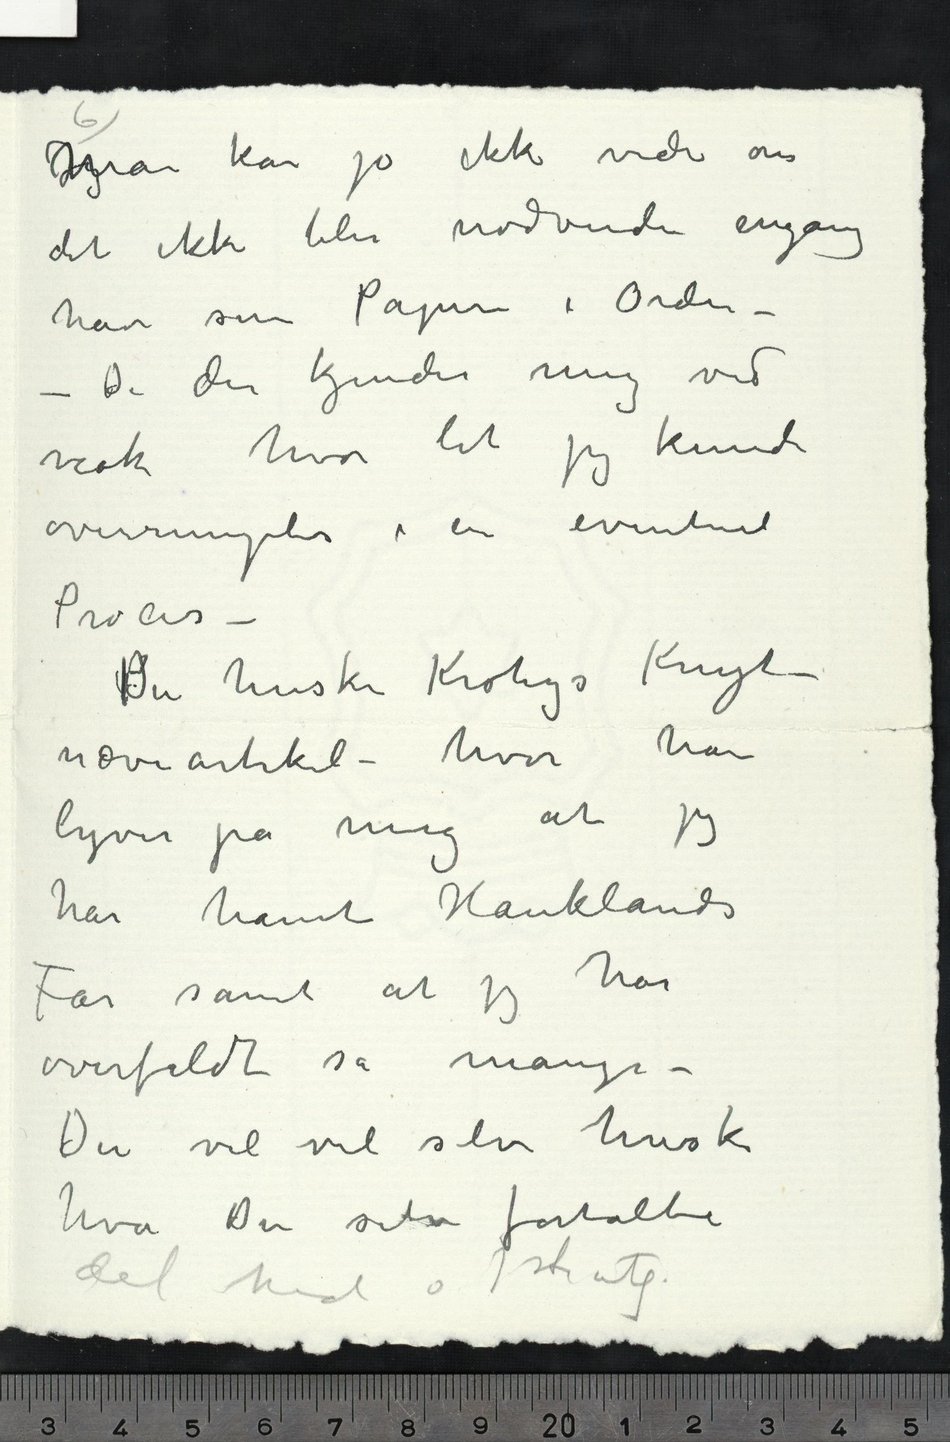 6)
Man kan jo ikke vide om
det ikke blir nødvendi engang
have sine Papirer i Orden –
– De der kjender mig ved
nok hvor let jeg kunde
overrumples i en eventuel
Proces –
Du husker Krohgs Knyt–
næveartikel – hvor han
lyver på mig at jeg
har hamt Hauklands
Far samt at jeg har
overfaldt så mange –
Du vil vel selv huske
hva Du selv fortalte
del hed